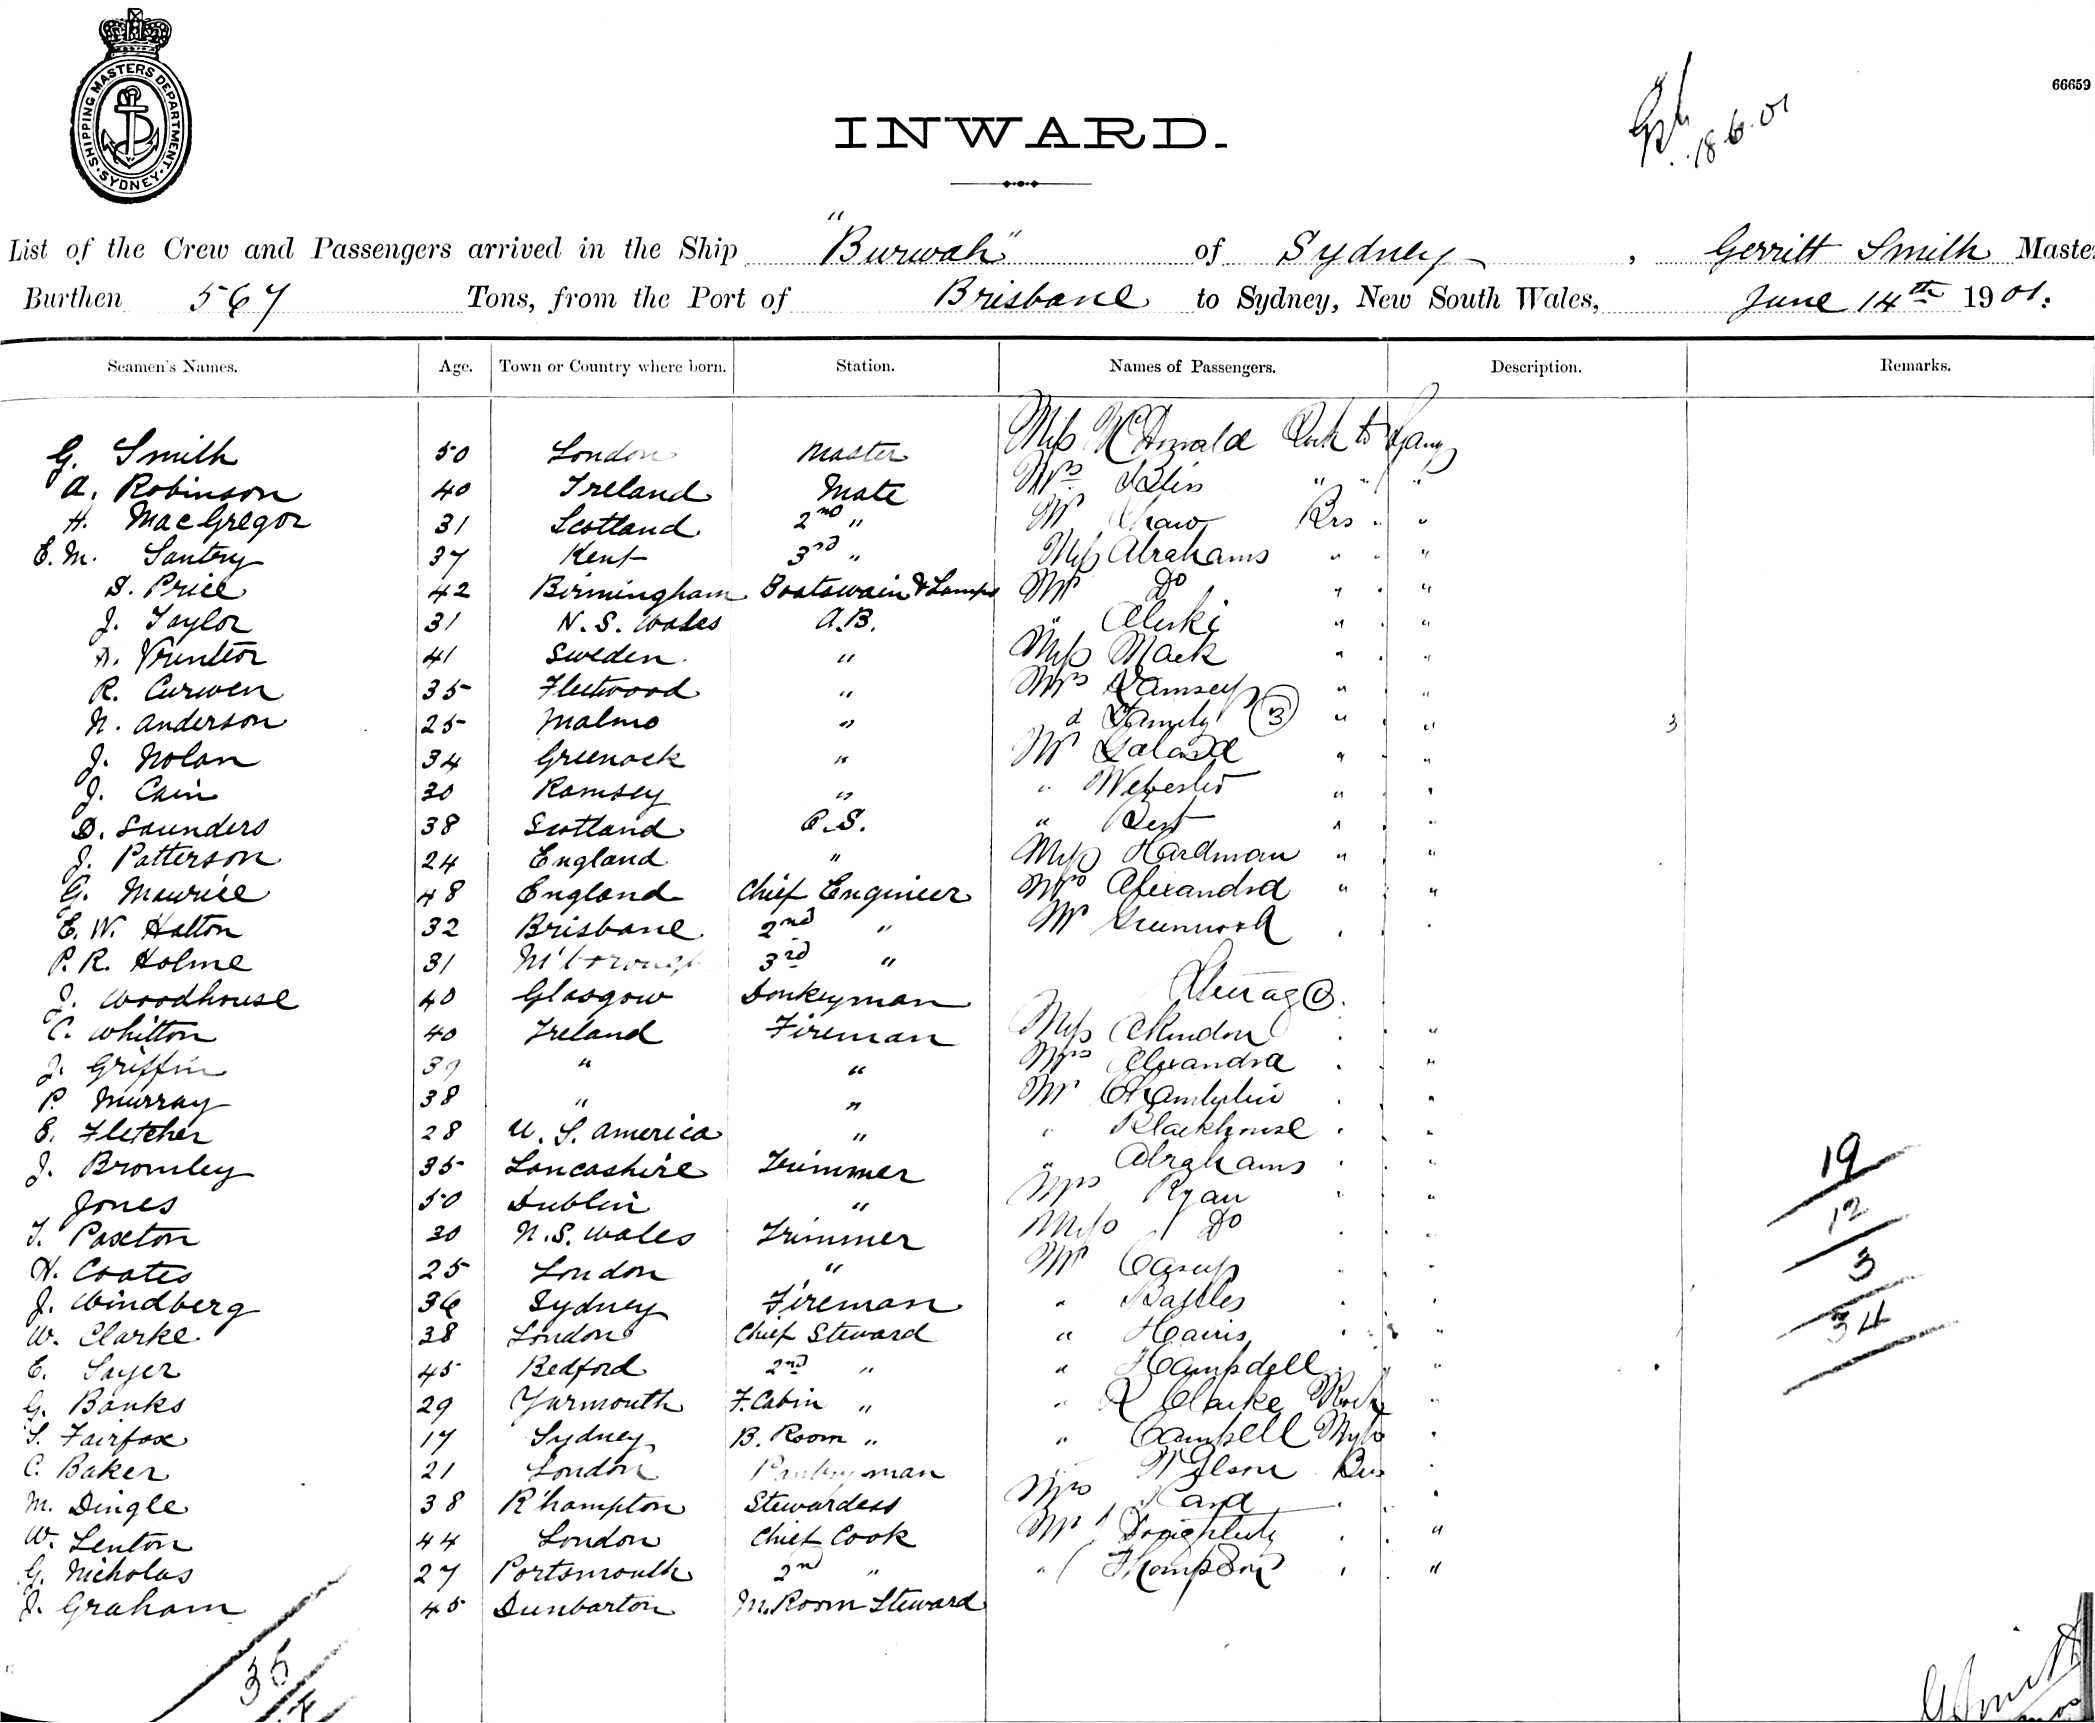 SHIPPING MASTERS DEPARTMENT
SYDNEY
66659
INWARD.
18.6.01
List of the Crew and Passengers arrived in the Ship "Burwah" of Sydney, Gerritt Smith Master
Burthen 567 Tons, from the Port of Brisbane to Sydney, New South Wales, June 14th 1901.
Seamen's Names. Age. Town or Country where born. Station. Names of Passengers. Description. Remarks.
G. Smith 50 London Master Miss McDonald
A. Robinson 40 Ireland Mate Mrs " " "
H. MacGregor 31 Scotland 2nd " Mr Shaw " "
E. M. Santry 37 Kent 3rd " Miss Abrahams " " "
S. Price 42 Birmingham Boatswain & Lamps Mr Do " " "
J. Taylor 31 N. S. Wales A.B. " " " "
A. 41 Sweden " Miss Mack " " "
R. Curwen 35 Fleetwood " Mrs Ramsey " "
N. Anderson 25 Malmo " & Family (3) " " 3
J. Nolan 34 Greenock " Mr " "
J. Cain 30 Ramsey " " Webster " "
D. Saunders 38 Scotland O.S. " Best " "
J. Patterson 24 England " Miss Hardman " "
G. Maurice 48 England Chief Engineer Mrs Alexandra " "
E. W. Halton 32 Brisbane 2nd " Mr Greenwood
P. R. Holme 31 M'borough 3rd "
J. Woodhouse 40 Glasgow Donkeyman Steerage
C. Whitton 40 Ireland Fireman Miss "
J. Griffin 39 " " Mrs Alexandra "
P. Murray 38 " " Mr Chamberlin "
E. Fletcher 28 U. S. America " " Blackhouse "
J. Bromley 35 Lancashire Trimmer " Abrahams "
Jones 50 Dublin " Mrs Ryan "
T. Paxton 30 N.S. Wales Trimmer Miss Do
H. Coates 25 London " Mr
J. Windberg 36 Sydney Fireman "
W. Clarke 38 London Chief Steward " Harris "
E. Sayer 45 Bedford 2nd " " Campbell "
G. Banks 29 Yarmouth F. Cabin " " R Clarke Rock "
S. Fairfax 17 Sydney B. Room " " Campbell
C. Baker 21 London Pantryman " Wilson
M. Dingle 38 R'hampton Stewardess Mrs
W. Lenton 44 London Chief Cook Mr "
G. Nicholas 27 Portsmouth 2nd " " Thompson "
J. Graham 45 Dunbarton M. Room Steward
19
12
3
34
35
G Smith